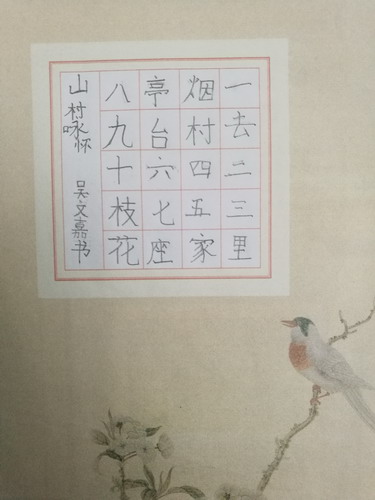 一去二三里
烟村四五家
亭台六七座
八九十枝花
山村咏怀 吴文嘉书